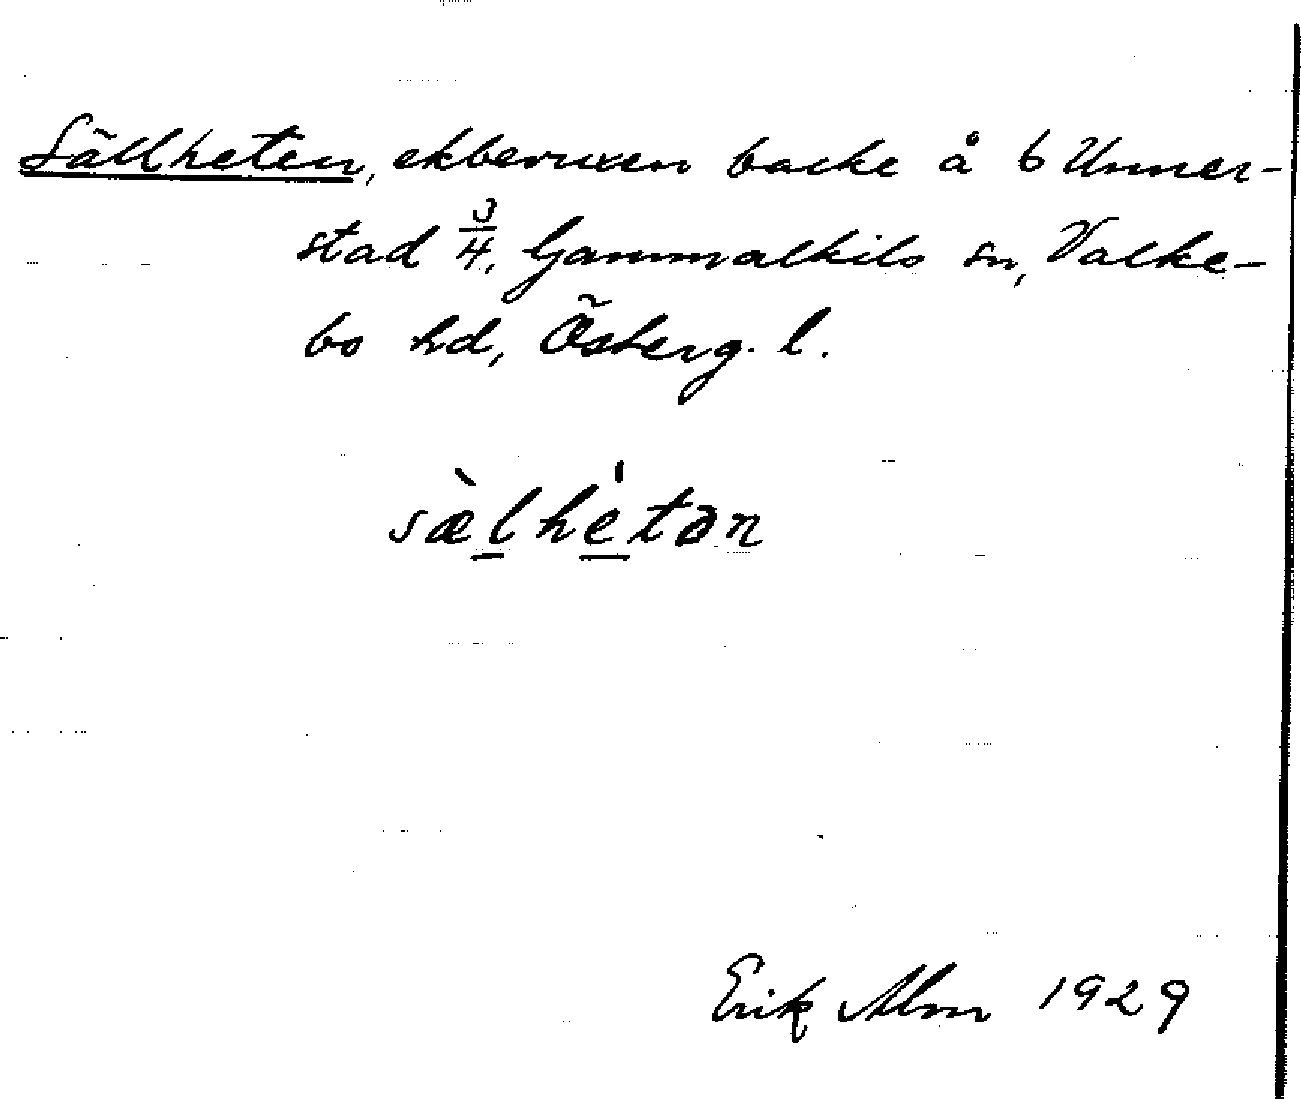 Sällheten, ekbevuxen backe å 6 Unner-
stad 3/4, Gammalkils sn, Valke-
bo hd, Österg. l.
sæ̀lhe̍tən
Erik Alm 1929